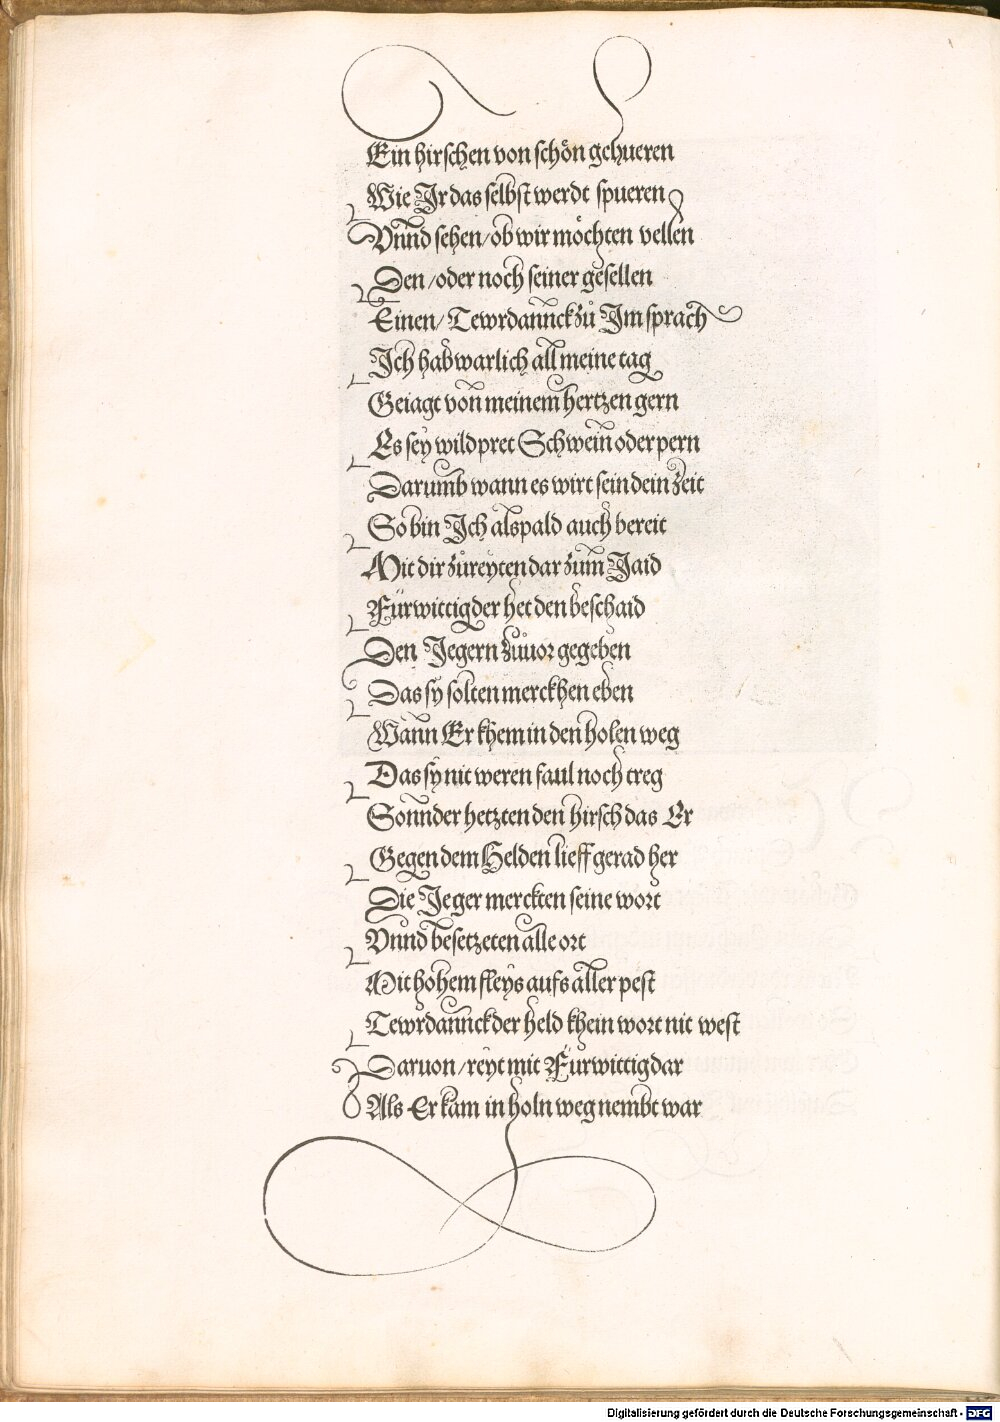 Ein hirſchen von ſchoͤn gehueren
Wie Ir das ſelbſt werdt ſpueren
Vnnd ſehen/ob wir moͤchten vellen
Den/oder noch ſeiner geſellen
Einen/Tewrdannck zů Im ſprach
Ich hab warlich all meine tag
Geiagt von meinem hertzen gern
Es ſey wildpret Schwein oder pern
Darumb wann es wirt ſein dein zeit
So bin Ich alspald auch bereit
Mit dir zůreyten dar zum Jaid
Fürwittig der het den beſchaid
Den Jegern zůuor gegeben
Das ſy ſolten merckhen eben
Wann Er khem in den holen weg
Das ſy nit weren faul noch treg
Sonnder hetzten den hirſch das Er
Gegen dem Helden lieff gerad her
Die Jeger merckten ſeine wort
Vnnd beſetzeten alle ort
Mit hohem fleys aufs aller peſt
Tewrdannck der held khein wort nit weſt
Daruon/reyt mit Fürwittig dar
Als Er kam in holn weg nembt war
Digitalisierung gefördert durch die Deutsche Forschungsgemeinschaft - DFG